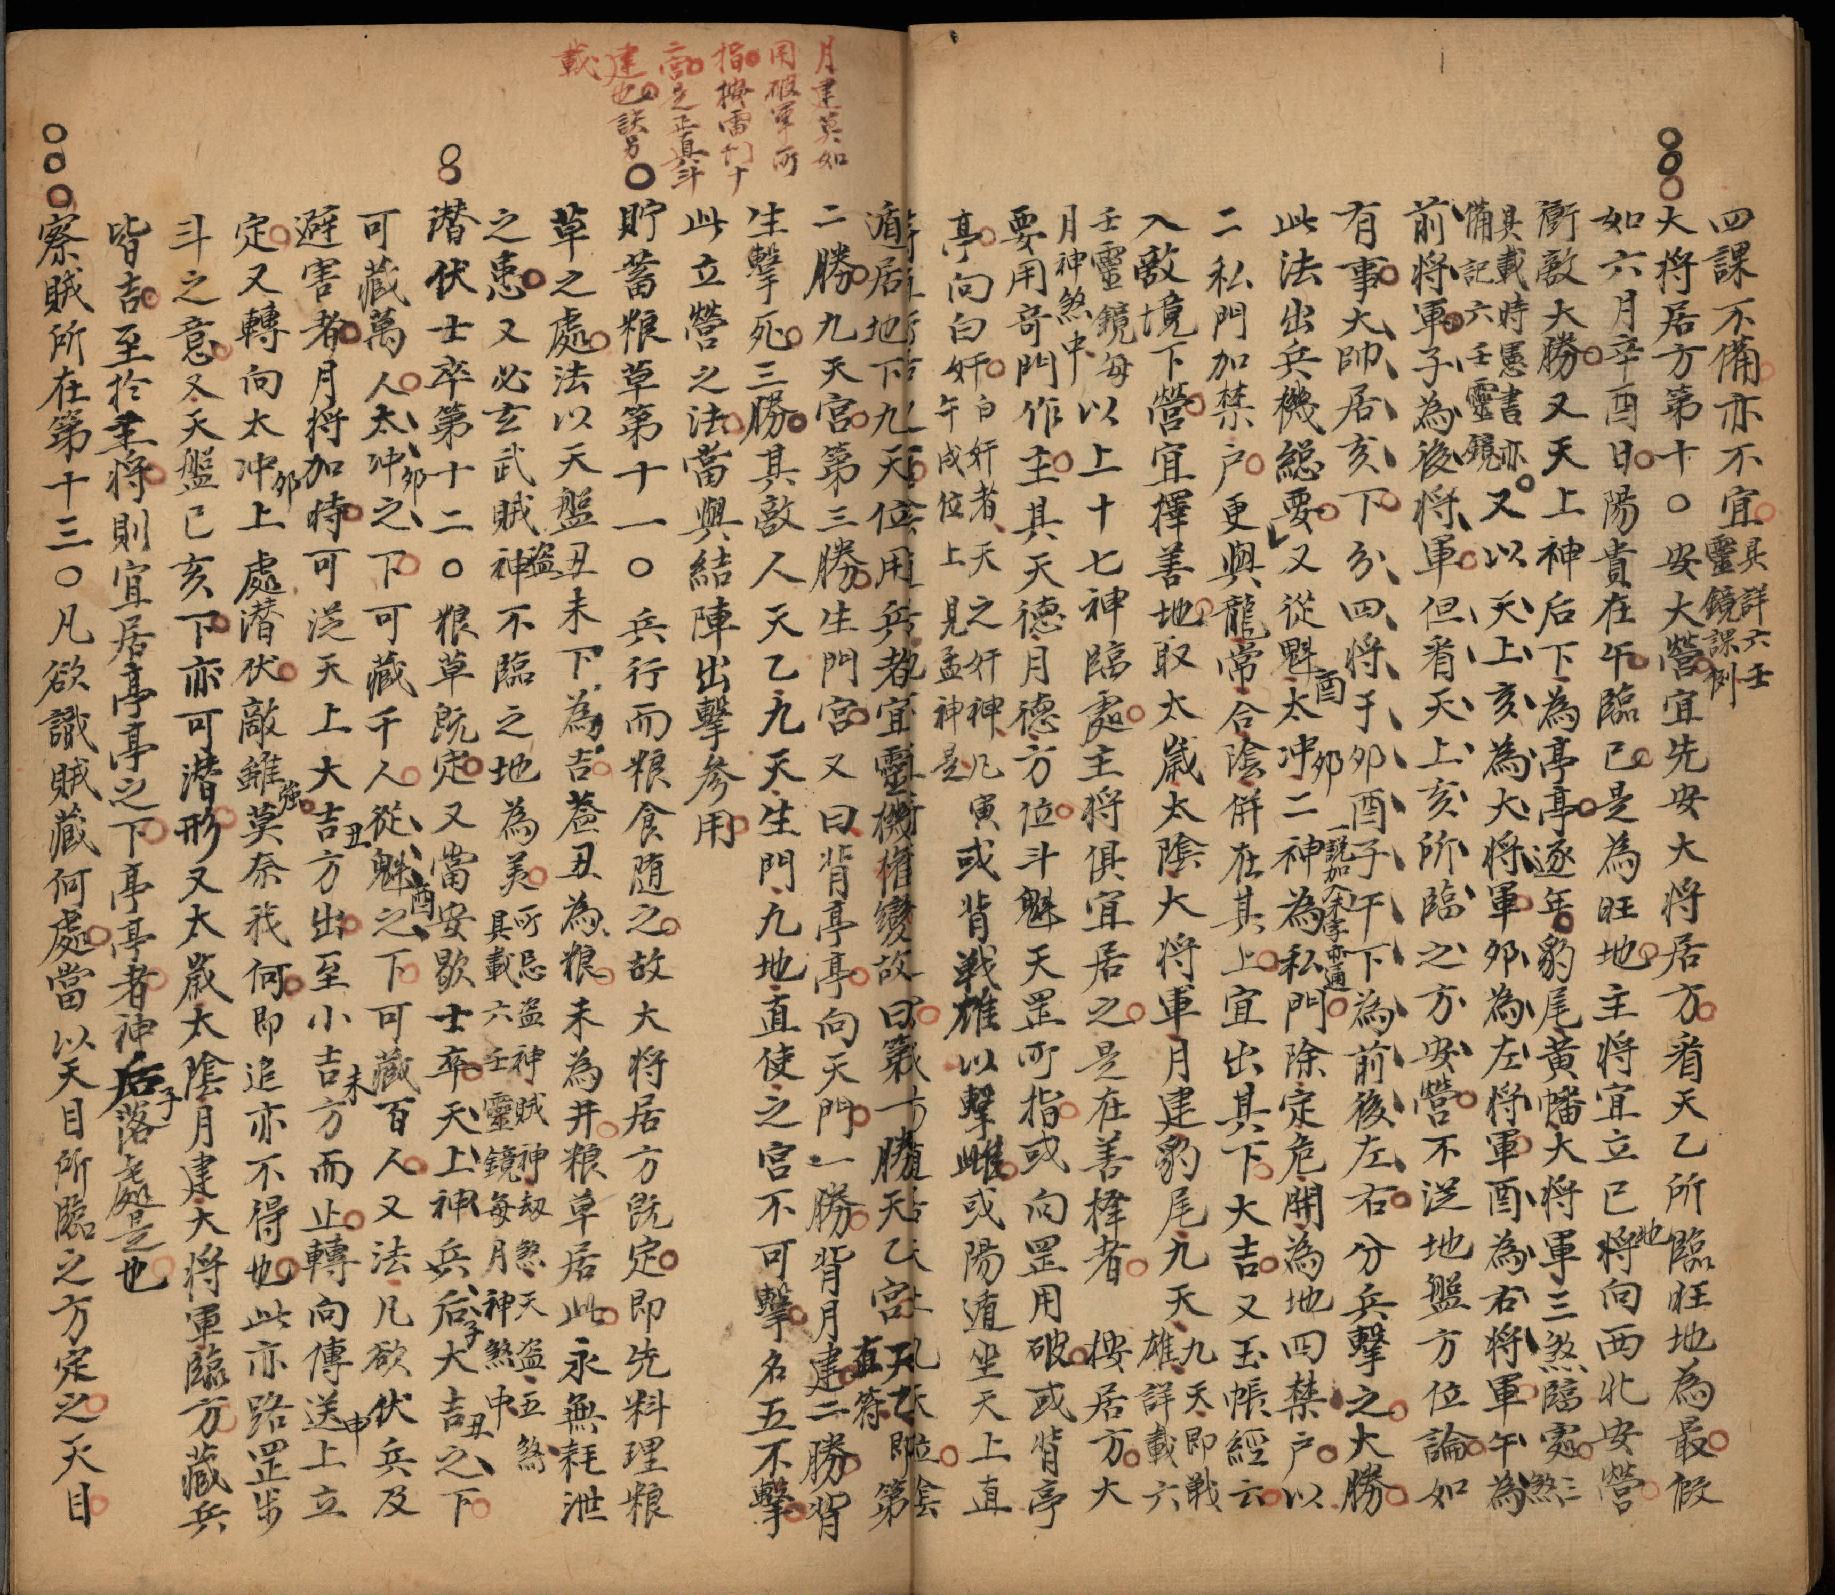 四課不備亦不宜具詳六壬靈鏡課例
大将居方第十○安大營宜先安大将居方看天乙所臨旺地為最假
如六月辛酉日陽貴在午臨巳是為旺地主將宜立巳地將向西北安營
衝敵大勝又天上神后下為亭亭逐年豹尾黃幡大将軍三煞臨處三煞
具載時憲書亦備記六壬靈鏡又以天上亥為大将軍卯為左将軍酉為右将軍午為
前将軍子為後将軍但看天上亥所臨之方安營不泥地盤方位論如
有事大帥居亥下分四将于卯酉子午下為前後左右分兵擊之大勝
此法出兵機總要又從魁酉太冲卯二神為私門除定危開為地四禁户以
二私門加禁户更與龍常合陰併在其上宜出其下大吉又玉帳經云
入敵境下營宜擇善地取太歲太陰大将軍月建豹尾九天九天即戦雄詳載六
壬靈鏡每月神煞中以上十七神臨處主將俱宜居之是在善擇者 按居方大
要用奇門作主其天德月德方位斗魁天罡所指或向罡用破或背亭
亭向白奸白奸者天之奸神凡寅午戌位上見孟神是或背戦雄以擊雌或陽遁坐天上直
遁居地下九天位用兵者宜靈機權變故曰第一勝天乙宮天乙即直符第
二勝九天宮第三勝生門宮又曰背亭亭向天門一勝背月建二勝背
生擊死三勝其敵人天乙九天生門九地直使之宮不可擊名五不擊
此立營之法當與結陣出擊參用
月建莫如
用破軍所
指按雷門十
宮是正真斗
建也詼另
載
貯蓄粮草第十一○兵行而粮食随之故大将居方既定即先料理粮
草之處法以天盤丑未下為吉葢丑為粮未為井粮草居此永無耗泄
之患又必玄武賊神盗不臨之地為美所忌盗神賊神劫煞天盗五煞具載六壬靈鏡每月神煞中
潜伏士卒第十二○粮草既定又當安歇士卒天上神兵后子大吉丑之下
可藏萬人太冲卯之下可藏千人從魁酉之下可藏百人又法凡欲伏兵及
避害者月将加時可泛天上大吉丑方出至小吉未方而止轉向傳送申上立
定又轉向太冲卯上處潜伏敵雖強莫奈我何即追亦不得也此亦踏罡步
斗之意又天盤已亥下亦可潜形又太歲太陰月建大将軍臨方藏兵
皆吉至扵主将則宜居亭亭之下亭亭者神后子落處是也
察賊所在第十三○凡欲識賊藏何處當以天目所臨之方定之天目